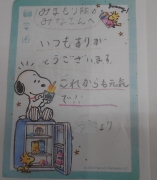 みまもり隊の
みなさんへ
いつもありが
とうございます
これからも元気
で!!
より